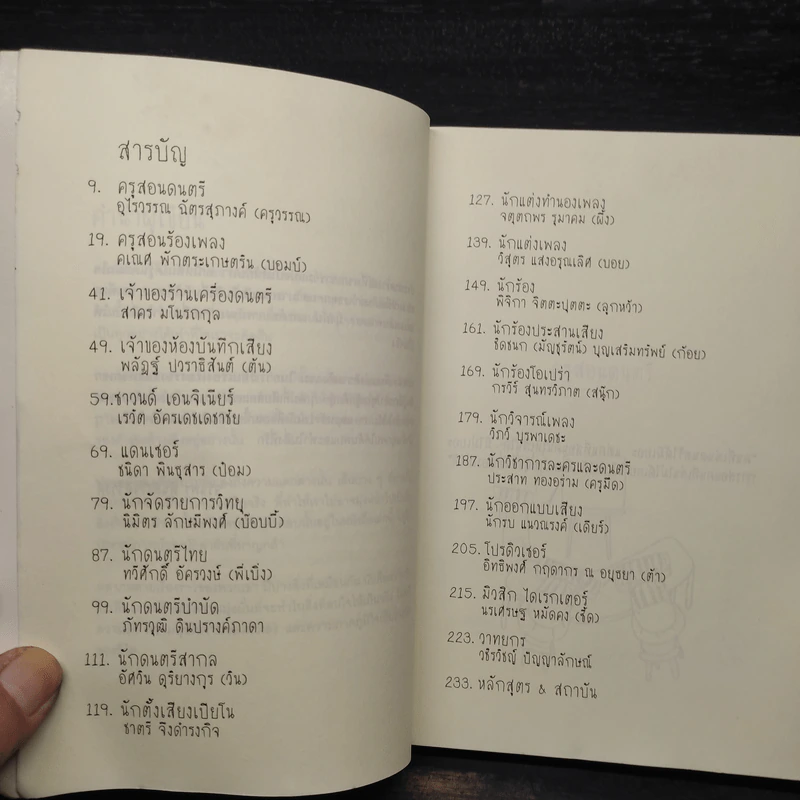 สารบัญ
9. ครูสอนดนตรี
อุไรวรรณ ฉัตรสุภางค์ (ครูวรรณ)
19. ครูสอนร้องเพลง
คเณศ พักตระเกษตริน (บอมบ์)
41. เจ้าของร้านเครื่องดนตรี
สาคร มโนรถกุล
49. เจ้าของห้องบันทึกเสียง
พลัฏฐ์ ปวราธิสันต์ (ต้น)
59. ซาวนด์ เอนจิเนียร์
เรวัต อัครเดชเดชาชัย
69. แดนเซอร์
ชนิดา พันธุสาร (ป๋อม)
79. นักจัดรายการวิทยุ
นิมิตร ลักษมีพงศ์ (บ๊อบบี้)
87. นักดนตรีไทย
ทวีศักดิ์ อัครวงษ์ (พี่เบิ่ง)
99. นักดนตรีบำบัด
ภัทรวุฒิ ดินปรางค์ภาดา
111. นักดนตรีสากล
อัศวิน ดุริยางกูร (วิน)
119. นักตั้งเสียงเปียโน
ชาตรี จึงดำรงกิจ
127. นักแต่งทำนองเพลง
จตุตถพร รุมาคม (ผึ้ง)
139. นักแต่งเพลง
วิสุตร แสงอรุณเลิศ (บอย)
149. นักร้อง
พิจิกา จิตตะปุตตะ (ลูกหว้า)
161. นักร้องประสานเสียง
ธิดชนก (มัญชุรัตน์) บุญเสริมทรัพย์ (ก้อย)
169. นักร้องโอเปร่า
กรวีร์ สุนทรวิภาต (สนุ๊ก)
179. นักวิจารณ์เพลง
วิภว์ บูรพาเดชะ
187. นักวิชาการละครและดนตรี
ประสาท ทองอร่าม (ครูมืด)
197. นักออกแบบเสียง
นักรบ แนวณรงค์ (เดียร์)
205. โปรดิวเซอร์
อิทธิพงศ์ กฤดากร ณ อยุธยา (ต้า)
215. มิวสิก ไดเรกเตอร์
นรเศรษฐ หมัดคง (ชี้ด)
223. วาทยกร
วธิรวิชญ์ ปัญญาลักษณ์
233. หลักสูตร & สถาบัน